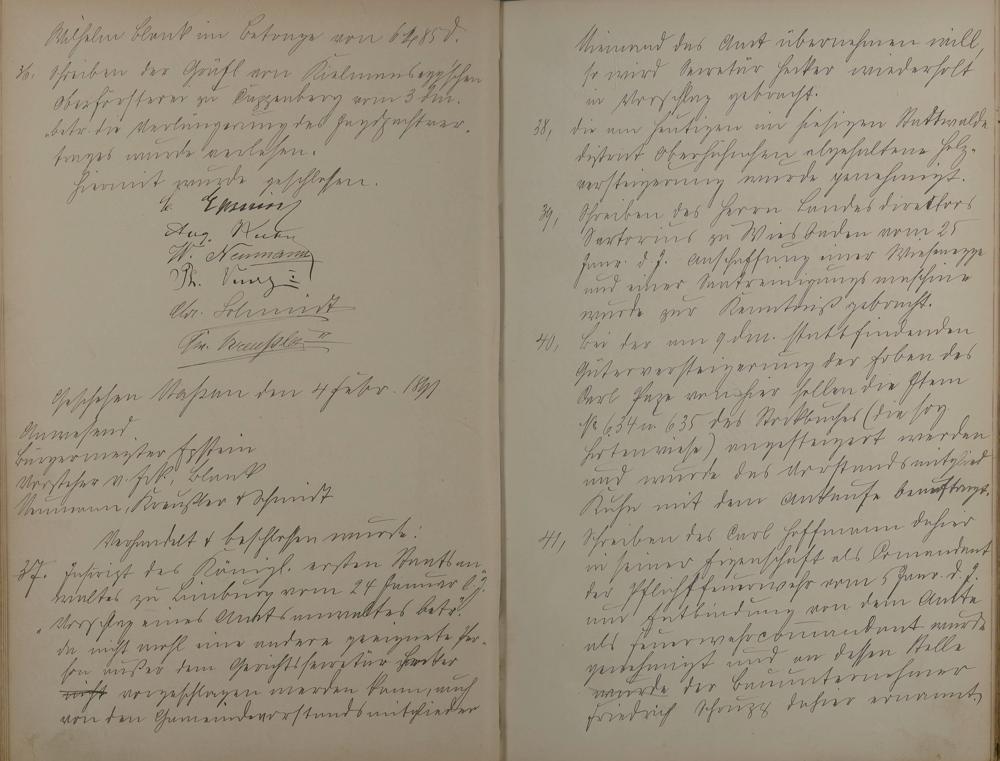 Wilhelm Blank im Betrage von 64,85 d.
36. Schreiben der Gräfl von Kielmannsegg'schen
Oberförsterei zu Cappenberg vom 3 dM.
betr. die Verlängerung des Jagdpachtver-
trages wurde verlesen.
Hiermit wurde geschlossen.
Epstein
Aug. Kuhn
W. Neumann
Ph. I
Chr. Schmidt
Kreußler II
Geschehen Nassau den 4 Febr. 1891
Anwesend
Bürgermeister Epstein
Vorsteher v. Eck, Blank
Neumann, Kreußler & Schmidt
Verhandelt & beschlossen wurde:
37. Inscript des Königl. ersten Staatsan-
waltes zu Limburg vom 24 Januar l. J.
Vorschlag eines Amtsanwaltes betr.
da nicht wohl eine andere geeignete Per-
son außer dem Gerichtssecretär Hecker
nicht vorgeschlagen werden kann, auch
von den Gemeindevorstandsmitglieder
Niemand das Amt übernehmen will,
so wird Secretär Hecker wiederholt
in Vorschlag gebracht.
38, Die am heutigen im hiesigen Stadtwalde
District abgehaltene Holz-
versteigerung wurde genehmigt.
39, Schreiben des Herrn Landesdirektors
Sartorius zu Wiesbaden vom 25
Janr. d. J. Anschaffung einer Wiesenegge
und einer Saatreinigungsmaschine
wurde zur Kenntniß gebracht.
40, Bei der am 9 dM. stattfindenden
Güterversteigerung der Erben des
Carl von hier sollen die Item
No 634 u. 635 des Stockbuches (die sog
Hirtenwiese) angesteigert werden
und wurde das Vorstandsmitglied
Kuhn mit dem Ankaufe beauftragt.
41, Schreiben des Carl Hoffmann dahier
in seiner Eigenschaft als Comandant
der Pflichtfeuerwehr vom 5 Janr. d. J.
um Entbindung von dem Amte
als Feuerwehrcommandant wurde
genehmigt und an dessen Stelle
wurde der Bauunternehmer
Friedrich dahier ernannt